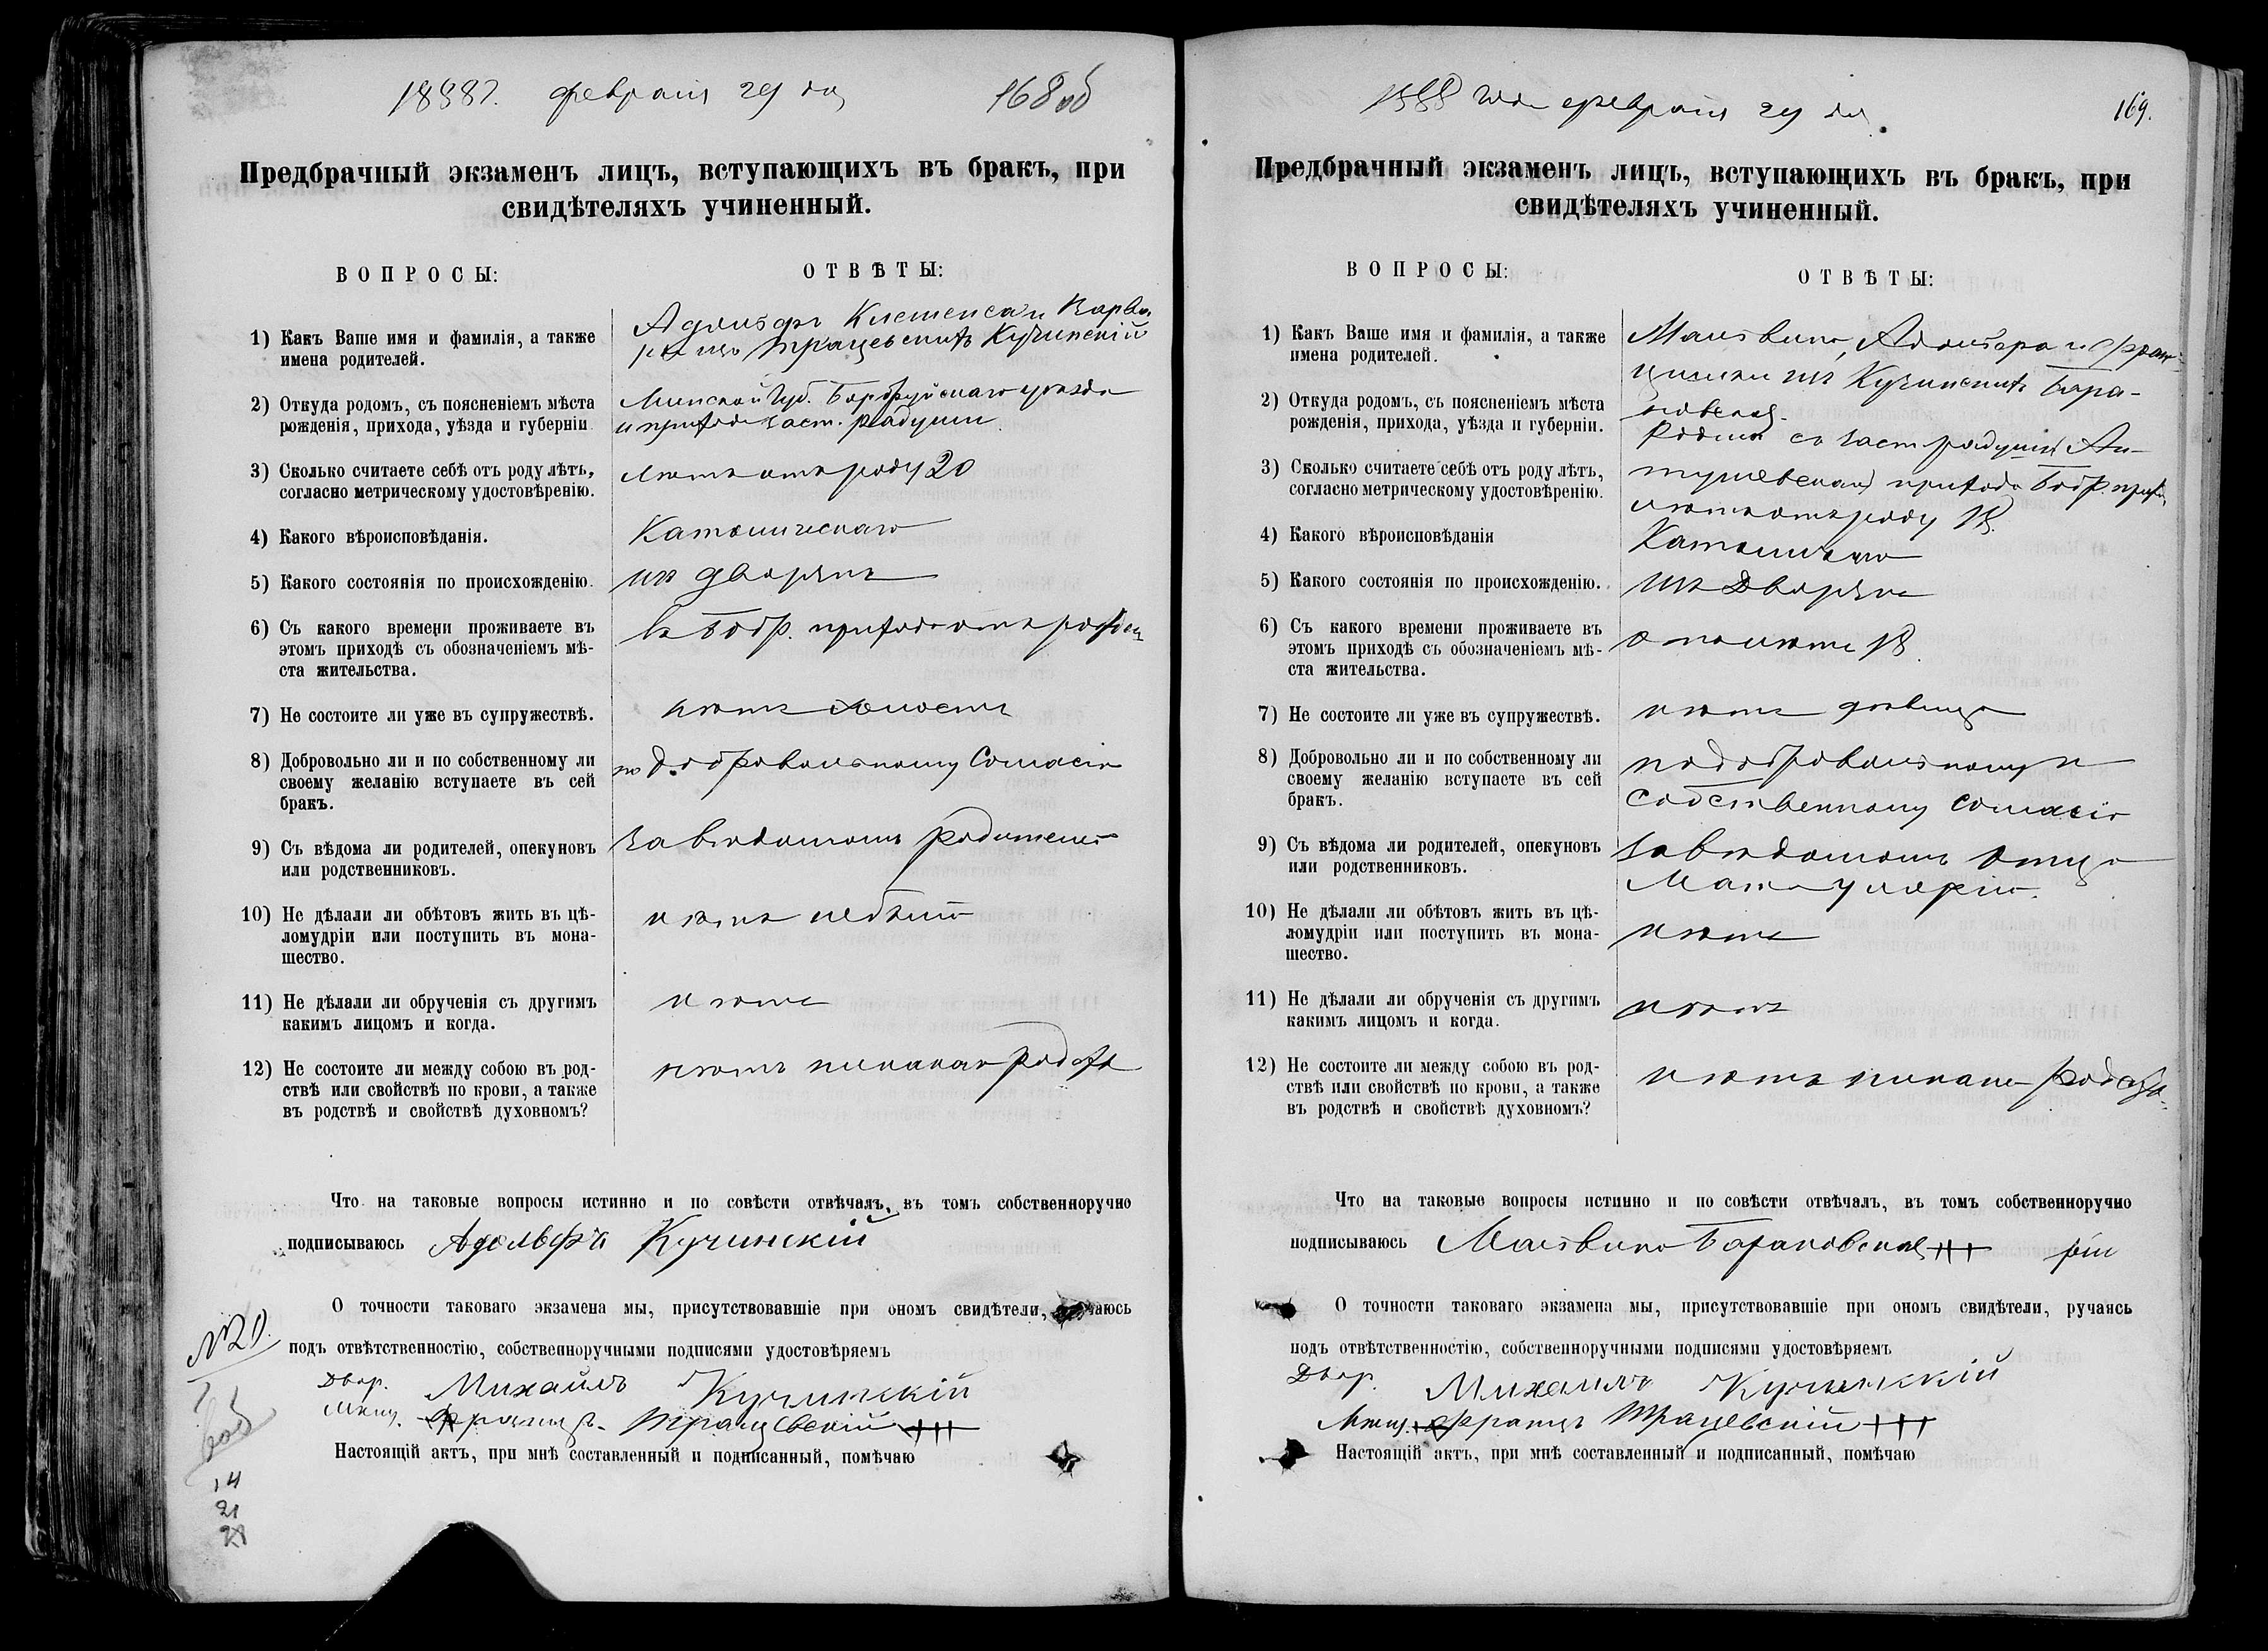 1888 г. февраля 29 дня
168 об
Предбрачный экзаменъ лицъ, вступающихъ въ бракъ, при
свидѣтеляхъ учиненный.
ВОПРОСЫ:
ОТВѢТЫ:
1) Какъ Ваше имя и фамилія, а также
имена родителей.
Адольфъ Клеменса и Варва-
ры изъ Трацевскихъ Кучинскій
2) Откуда родомъ, съ поясненіемъ мѣста
рожденія, прихода, уѣзда и губерніи
Минской Губ. Бобруйскаго уѣзда
и прихода заст.
3) Сколько считаете себѣ отъ роду лѣтъ,
согласно метрическому удостовѣренію.
лѣтъ отъ роду 20
4) Какого вѣроисповѣданія.
Католическаго
5) Какого состоянія по происхожденію.
изъ дворянъ
6) Съ какого времени проживаете въ
этомъ приходѣ съ обозначеніемъ мѣ-
ста жительства.
въ Бобр. приходѣ отъ рожден
7) Не состоите ли уже въ супружествѣ.
нѣтъ холостъ
8) Добровольно ли и по собственному ли
своему желанію вступаете въ сей
бракъ.
по добровольному согласію
9) Съ вѣдома ли родителей, опекуновъ
или родственниковъ.
За вѣдомомъ родителей
10) Не дѣлали ли обѣтовъ жить въ цѣ-
ломудріи или поступить въ мона-
шество.
нѣтъ не былъ
11) Не дѣлали ли обрученія съ другимъ
какимъ лицомъ и когда.
нѣтъ
12) Не состоите ли между собою въ род-
ствѣ или свойствѣ по крови, а также
въ родствѣ и свойствѣ духовномъ?
нѣтъ никакаго родства
Что на таковые вопросы истинно и по совѣсти отвѣчалъ, въ томъ собственноручно
подписываюсь Адольфъ Кучинскій
О точности таковаго экзамена мы, присутствовавшіе при ономъ свидѣтели, ручаюсь
№ 20.
подъ отвѣтственностію, собственноручными подписями удостовѣряемъ
Двор. Михаилъ Кучинскій
Мѣщ. Францъ Трацевскій +++
Настоящій актъ, при мнѣ составленный и подписанный, помѣчаю
14
21
28
1888 года февраля 29 дня.
169.
Предбрачный экзаменъ лицъ, вступающихъ въ бракъ, при
свидѣтеляхъ учиненный.
ВОПРОСЫ:
ОТВѢТЫ:
1) Какъ Ваше имя и фамилія, а также
имена родителей.
Мальвина, Адольфа и Фран-
цишки изъ Кучинскихъ Бара-
новская
2) Откуда родомъ, съ поясненіемъ мѣста
рожденія, прихода, уѣзда и губерніи.
3) Сколько считаете себѣ отъ роду лѣтъ,
согласно метрическому удостовѣренію.
лѣтъ отъ роду 18.
4) Какого вѣроисповѣданія
Католическаго
5) Какого состоянія по происхожденію.
изъ Дворянъ
6) Съ какого времени проживаете въ
этомъ приходѣ съ обозначеніемъ мѣ-
ста жительства.
18.
7) Не состоите ли уже въ супружествѣ.
нѣтъ дѣвица
8) Добровольно ли и по собственному ли
своему желанію вступаете въ сей
бракъ.
по добровольному и
собственному согласію
9) Съ вѣдома ли родителей, опекуновъ
или родственниковъ.
За вѣдомомъ отца
Мать умерла.
10) Не дѣлали ли обѣтовъ жить въ цѣ-
ломудріи или поступить въ мона-
шество.
нѣтъ
11) Не дѣлали ли обрученія съ другимъ
какимъ лицомъ и когда.
нѣтъ
12) Не состоите ли между собою въ род-
ствѣ или свойствѣ по крови, а также
въ родствѣ и свойствѣ духовномъ?
нѣтъ никаке родства
Что на таковые вопросы истинно и по совѣсти отвѣчалъ, въ томъ собственноручно
подписываюсь Мальвина Барановская +++
О точности таковаго экзамена мы, присутствовавшіе при ономъ свидѣтели, ручаясь
подъ отвѣтственностію, собственноручными подписями удостовѣряемъ
Двор. Михаилъ Кучинскій
Мѣщ. Францъ Трацевскій +++
Настоящій актъ, при мнѣ составленный и подписанный, помѣчаю